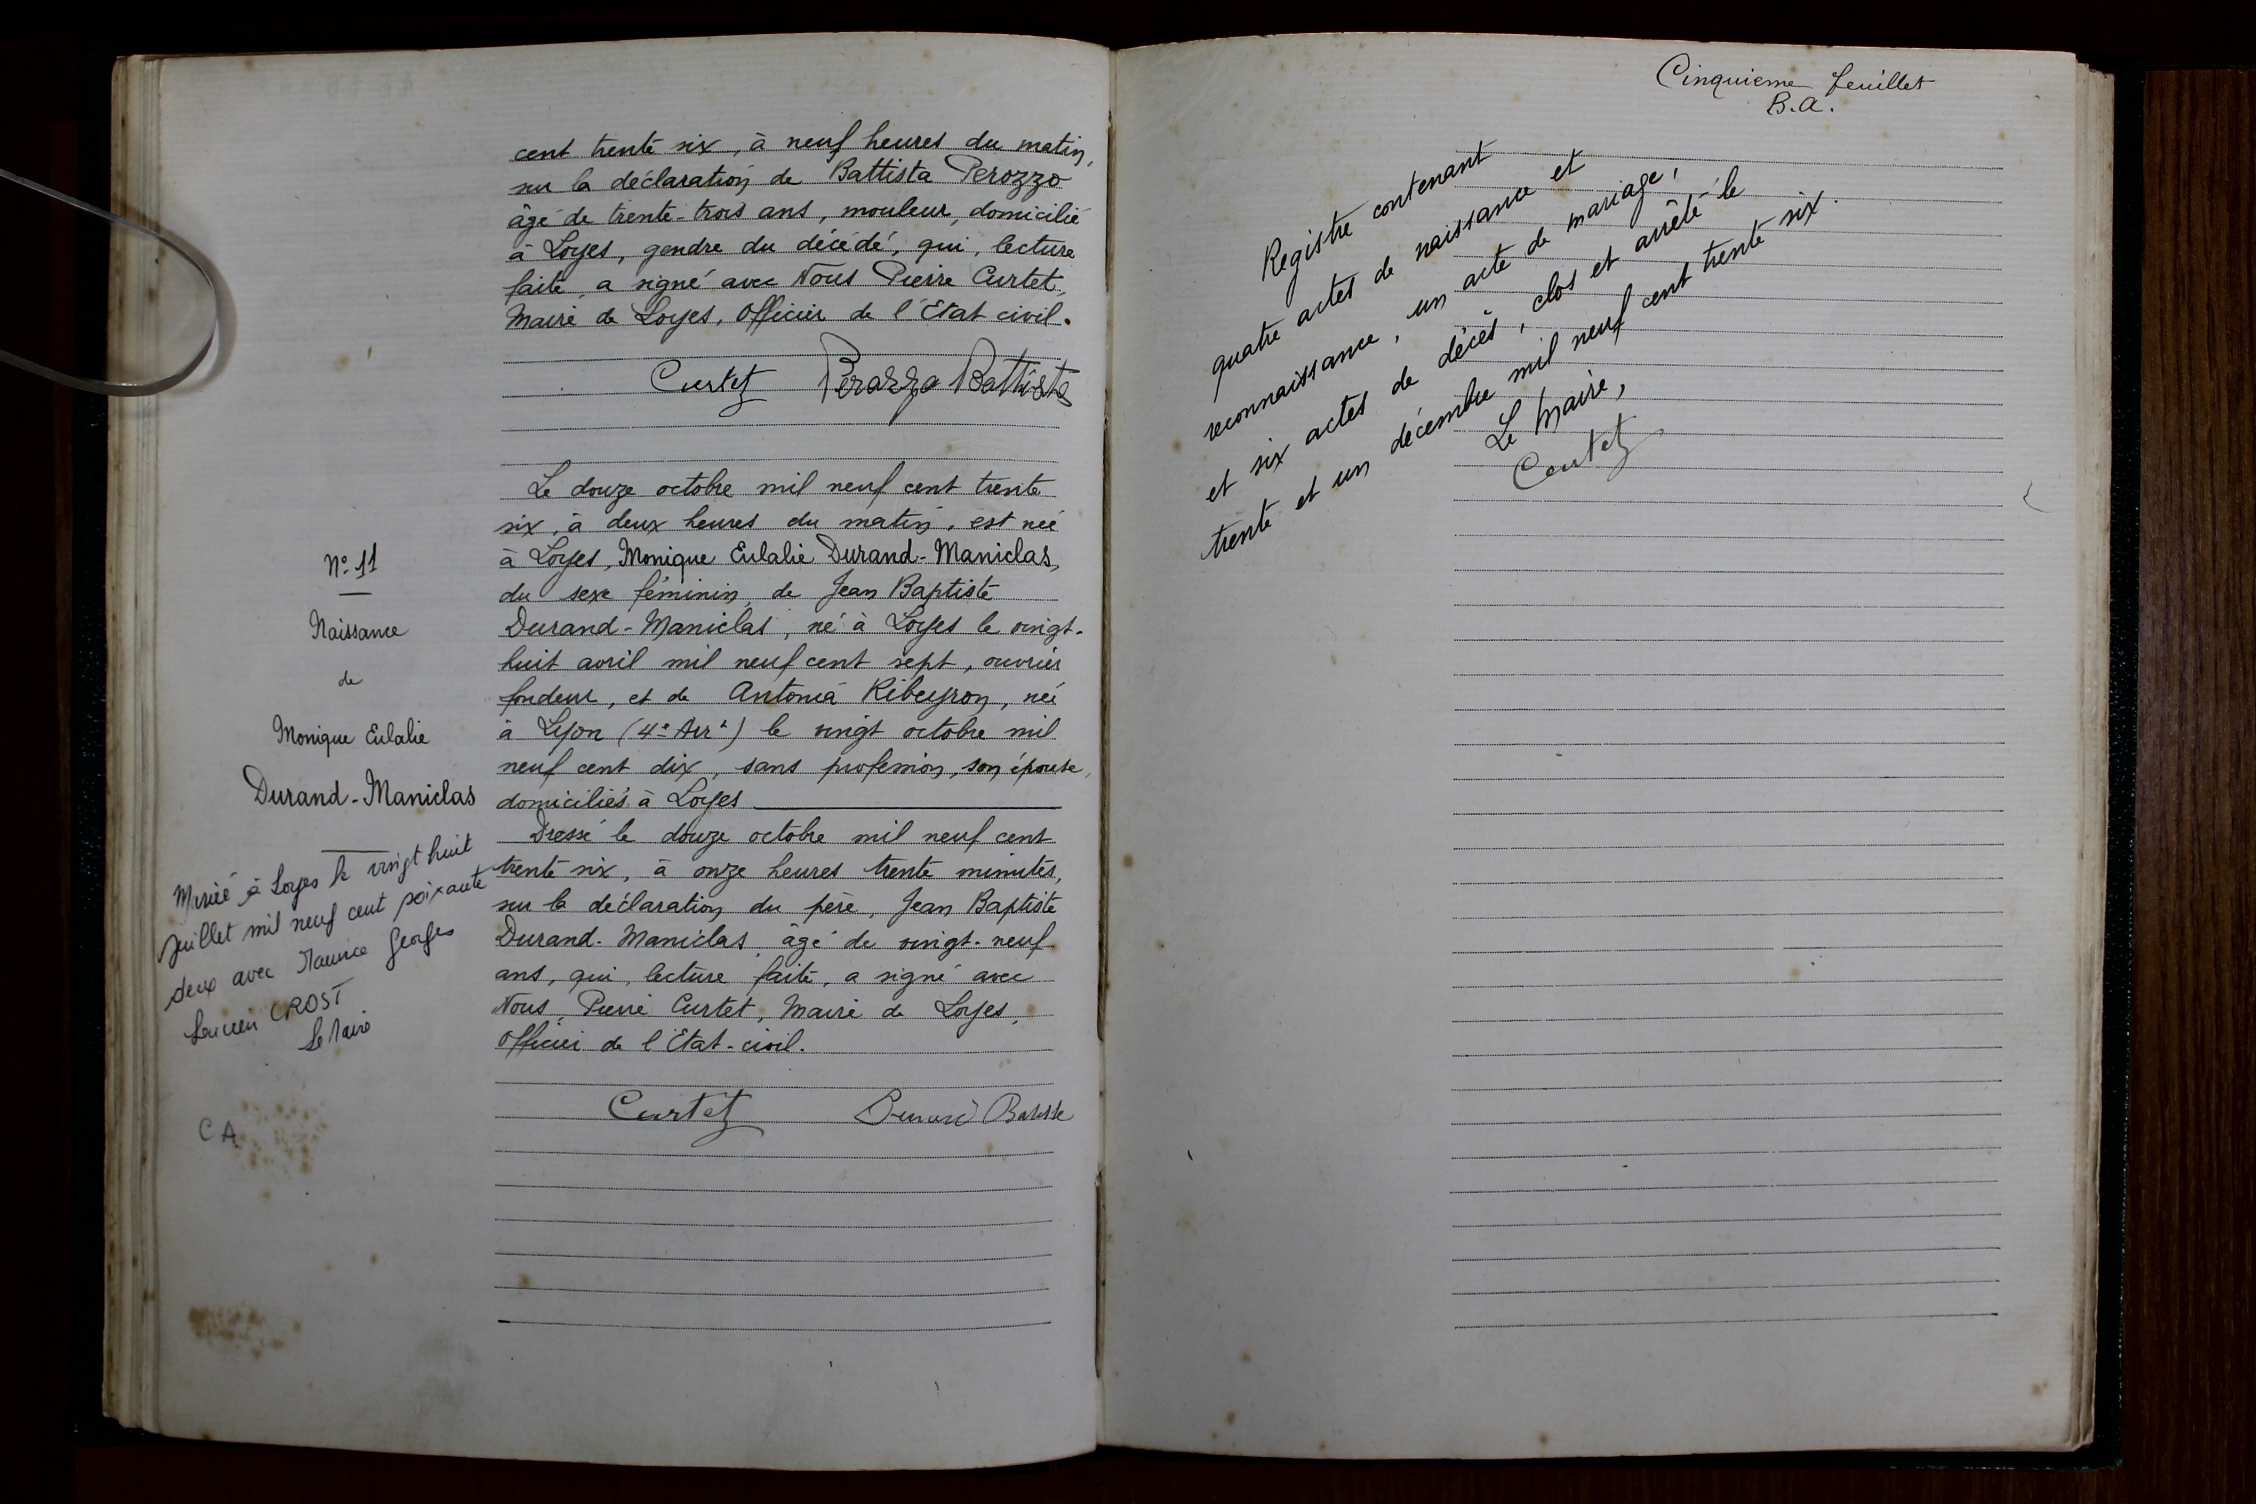 cent trente six, à neuf heures du matin,
sur la déclaration de Battista Perozzo
âgé de trente-trois ans, mouleur, domicilié
à Loyes, gendre du décédé, qui, lecture
faite, a signé avec Nous Pierre Curtet,
Maire de Loyes, Officier de l'Etat civil.
Curtet Perozzo Battista
N° 11
Naissance
de
Monique Eulalie
Durand-Maniclas
Le douze octobre mil neuf cent trente
six, à deux heures du matin, est née
à Loyes, Monique Eulalie Durand-Maniclas,
du sexe féminin, de Jean Baptiste
Durand-Maniclas, né à Loyes le vingt-
huit avril mil neuf cent sept, ouvrier
fondeur, et de Antonia Ribeyron, née
à Lyon (4e Arrt) le vingt octobre mil
neuf cent dix, sans profession, son épouse,
domiciliés à Loyes
Dressé le douze octobre mil neuf cent
trente six, à onze heures trente minutes,
sur la déclaration du père, Jean Baptiste
Durand-Maniclas, âgé de vingt-neuf
ans, qui, lecture faite, a signé avec
Nous, Pierre Curtet, Maire de Loyes,
Officier de l'Etat-civil.
Curtet
Mariée à Loyes le vingt huit
juillet mil neuf cent soixante
deux avec Maurice Georges
Lucien CROST
Le Maire
CA
Cinquième feuillet
B.A.
Registre contenant
quatre actes de naissance et
reconnaissance, un acte de mariage,
et six actes de décès, clos et arrêté le
trente et un décembre mil neuf cent trente six.
Le Maire,
Curtet